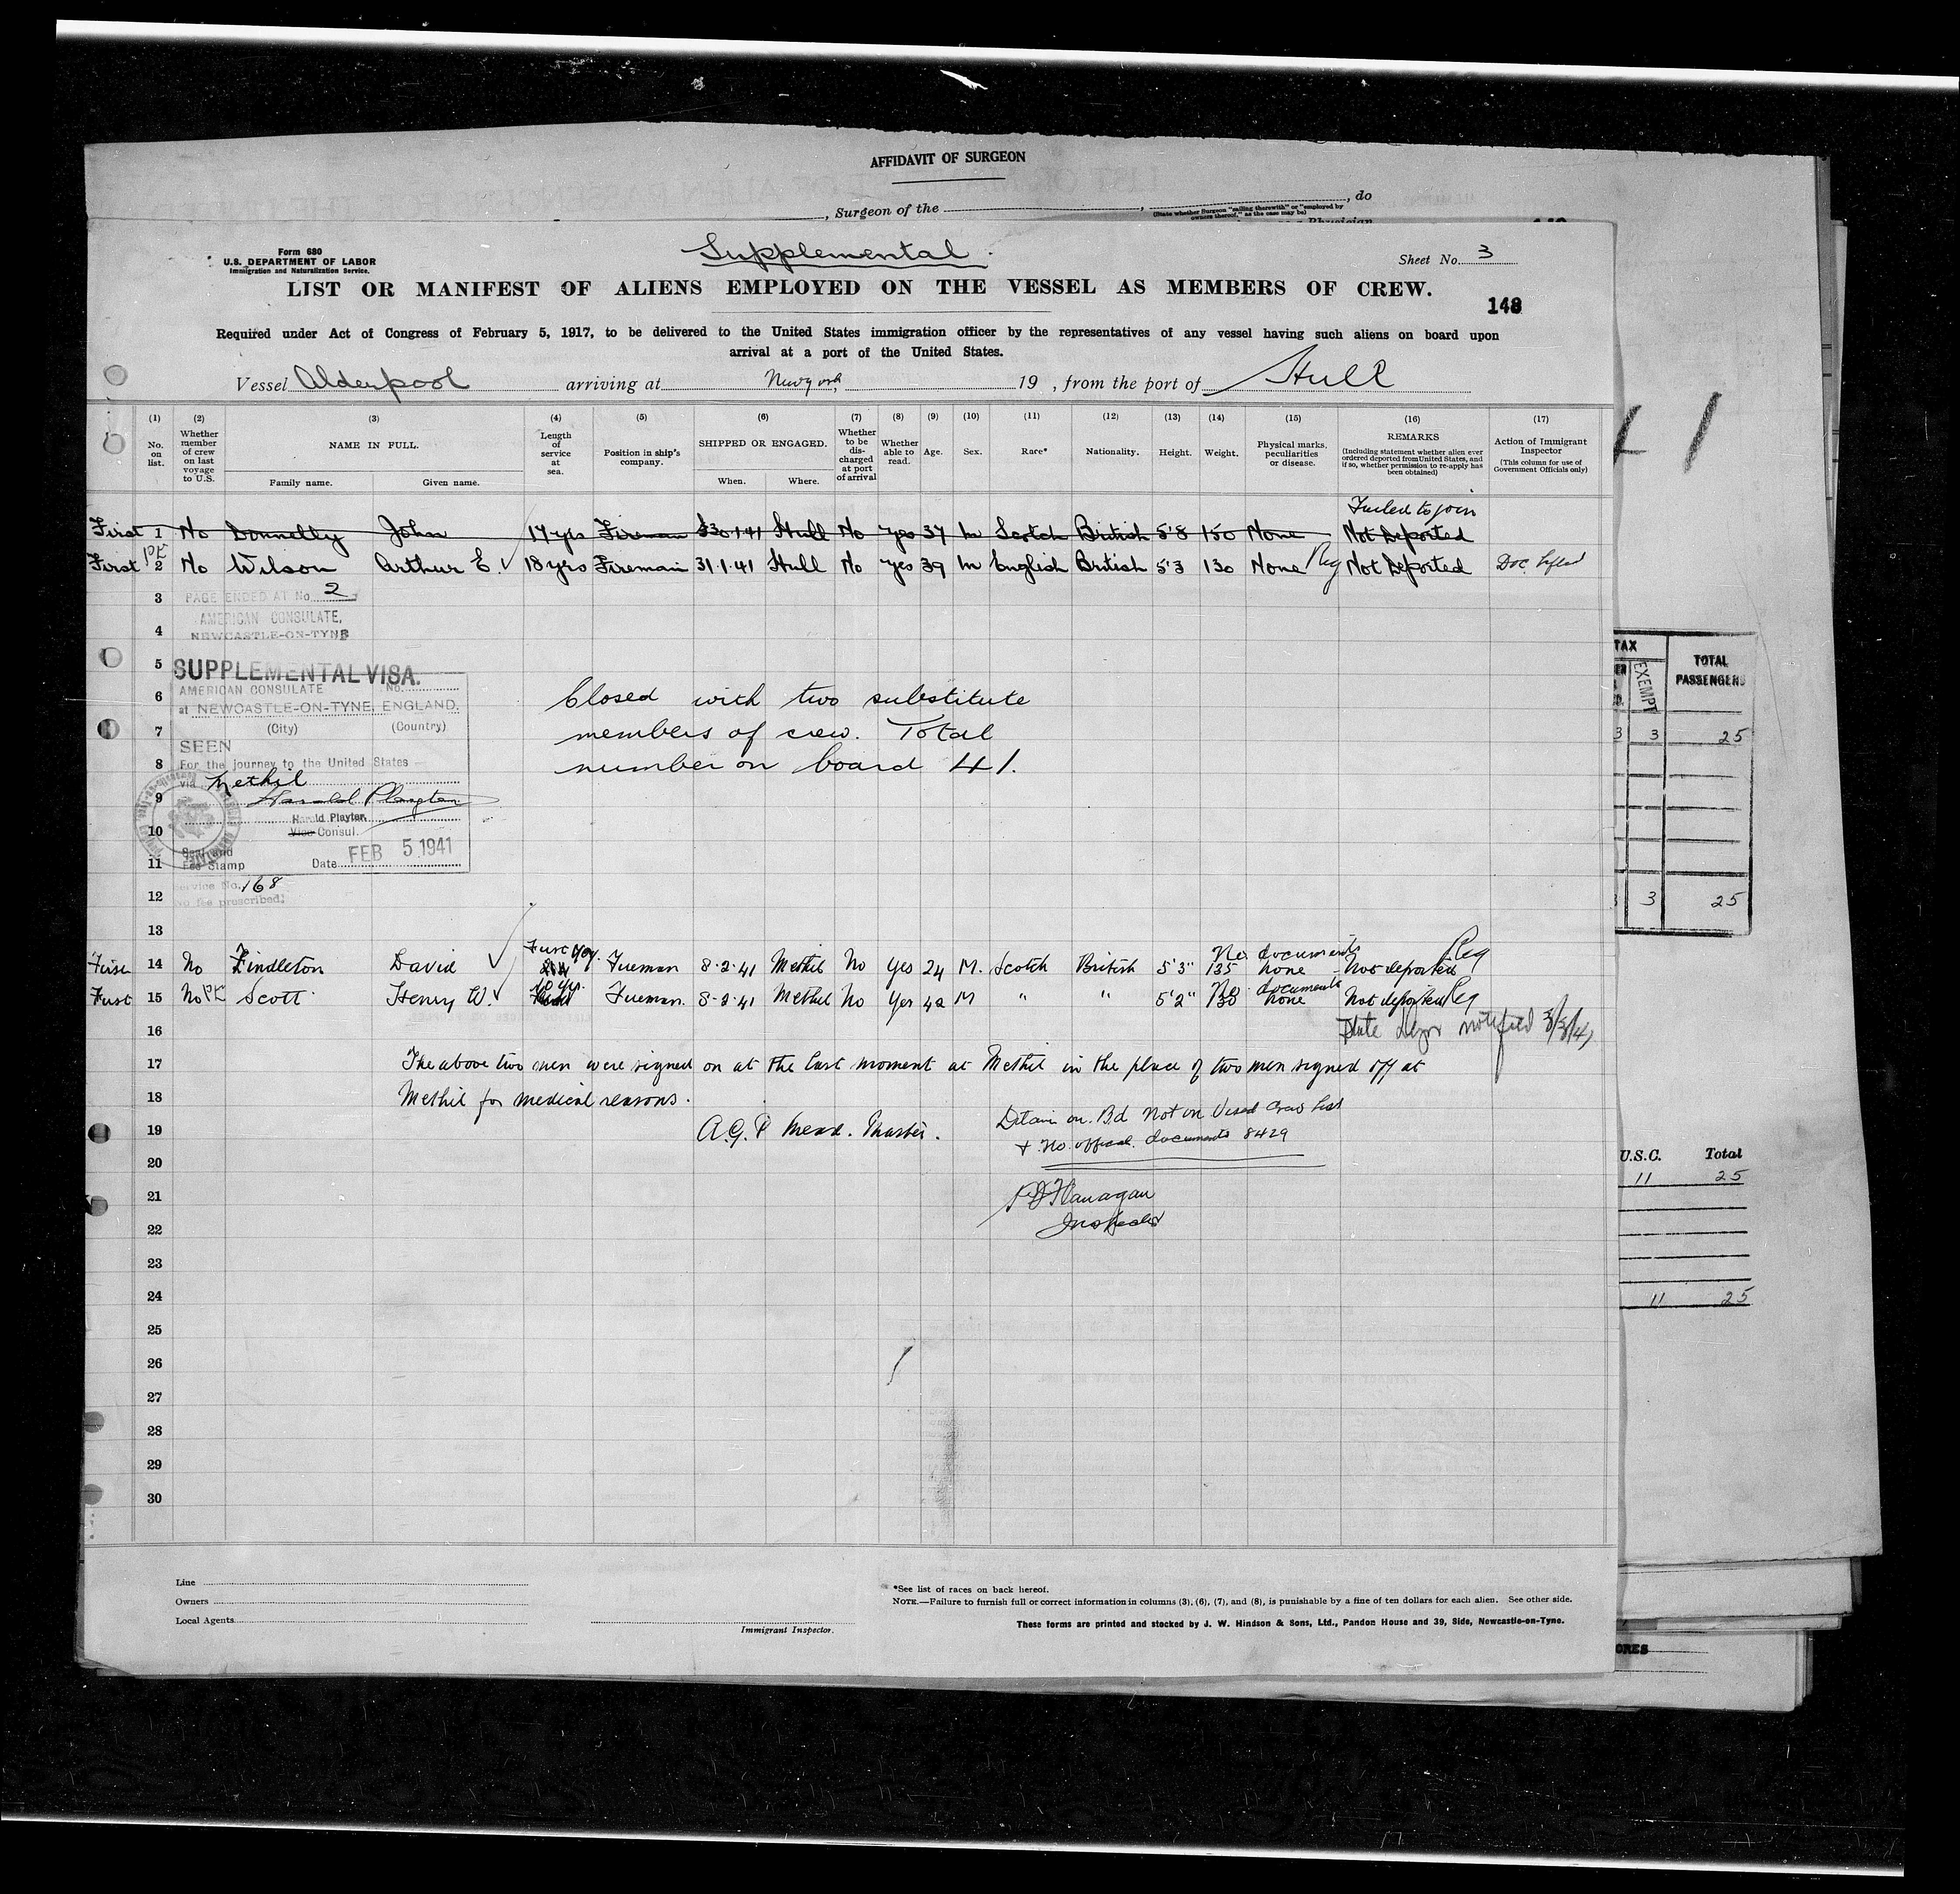 AFFIDAVIT OF SURGEON
, Surgeon of the , , do
(State whether Surgeon "sailing therewith" or "employed by owners thereof," as the case may be)
Form 680
U.S. DEPARTMENT OF LABOR
Immigration and Naturalization Service.
Supplemental.
Sheet No. 3
LIST OR MANIFEST OF ALIENS EMPLOYED ON THE VESSEL AS MEMBERS OF CREW.
148
Required under Act of Congress of February 5, 1917, to be delivered to the United States immigration officer by the representatives of any vessel having such aliens on board upon
arrival at a port of the United States.
Vessel Alderpool arriving at New York, 19 , from the port of Hull
(1) (2) (3) (4) (5) (6) (7) (8) (9) (10) (11) (12) (13) (14) (15) (16) (17)
No. on list.
Whether member of crew on last voyage to U.S.
NAME IN FULL.
Family name. Given name.
Length of service at sea.
Position in ship's company.
SHIPPED OR ENGAGED.
When. Where.
Whether to be discharged at port of arrival
Whether able to read.
Age.
Sex.
Race*
Nationality.
Height.
Weight.
Physical marks, peculiarities or disease.
REMARKS
(Including statement whether alien ever ordered deported from United States, and if so, whether permission to re-apply has been obtained)
Action of Immigrant Inspector
(This column for use of Government Officials only)
Failed to join
First 1 No Donnelly John 17 yrs Fireman 30.1.41 Hull No yes 37 M Scotch British 5'8 150 None Not Deported
First 2 No Wilson Arthur E. 18 yrs Fireman 31.1.41 Hull No yes 39 M English British 5'3 130 None Not Deported
3 PAGE ENDED AT No. 2
4 AMERICAN CONSULATE,
NEWCASTLE-ON-TYNE
5 SUPPLEMENTAL VISA.
6 AMERICAN CONSULATE No.
at NEWCASTLE-ON-TYNE, ENGLAND.
7 (City) (Country)
SEEN
8 For the journey to the United States
via Methil
9 Harold Playter
Harold Playter
10 Vice Consul.
11 Seal and
Fee Stamp Date FEB 5 1941
Service No. 168
12 No fee prescribed.
Closed with two substitute
members of crew. Total
number on board 41.
13
First Voy. No documents Reg
First 14 No Findleton David Fireman 8.2.41 Methil No Yes 24 M. Scotch British 5'3" 135 none Not deported
10 yrs. No documents
First 15 No Scott Henry W. Fireman. 8.2.41 Methil No Yes 42 M " " 5'2" 130 none Not deported Reg
16 notified 3/3/41
17 The above two men were signed on at the last moment at Methil in the place of two men signed off at
18 Methil for medical reasons.
19 A.G.P. Mead. Master.
Detain on Bd Not on Visaed Crew List
& No official documents 8429
20
21 Flanagan
22 Inspector
23
24
25
26
27
28
29
30
Line
Owners
Local Agents
Immigrant Inspector.
*See list of races on back hereof.
NOTE.—Failure to furnish full or correct information in columns (3), (6), (7), and (8), is punishable by a fine of ten dollars for each alien. See other side.
These forms are printed and stocked by J. W. Hindson & Sons, Ltd., Pandon House and 39, Side, Newcastle-on-Tyne.
TAX
EXEMPT
TOTAL PASSENGERS
3 3 25
3 25
U.S.C. Total
11 25
11 25